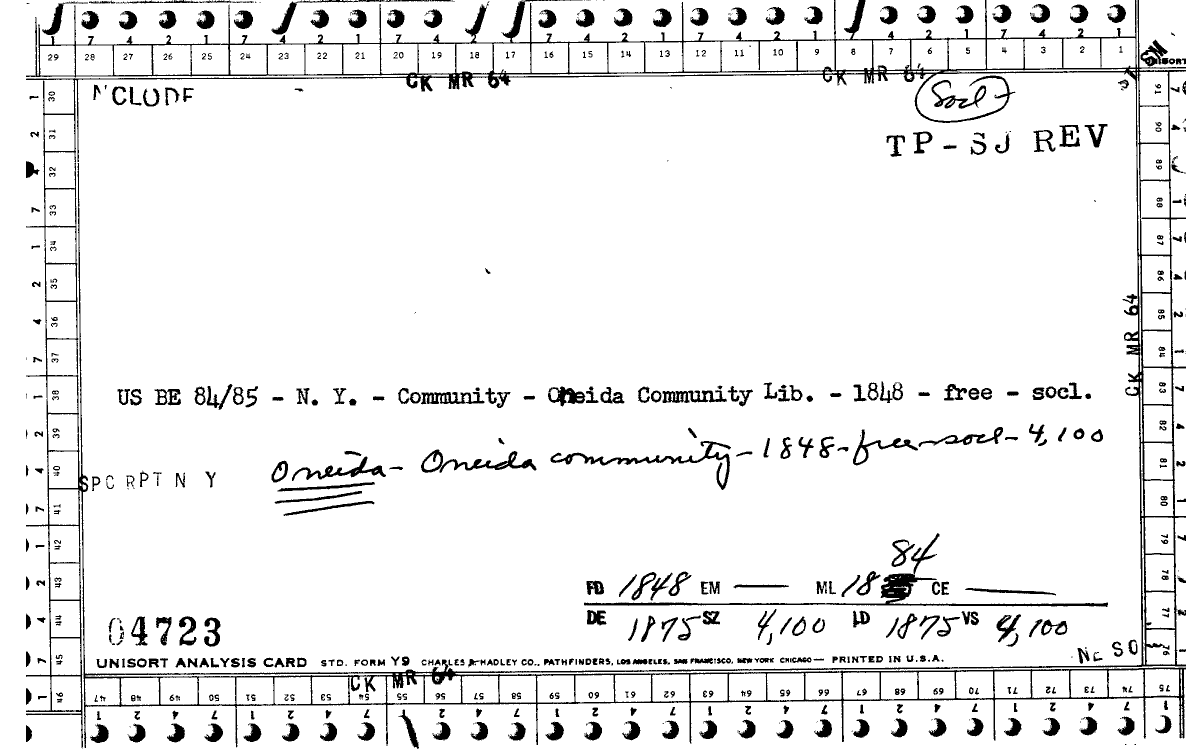 1 7 4 2 1 7 4 2 1 7 4 2 1 7 4 2 1 7 4 2 1 7 4 2 1
29 28 27 26 25 24 23 22 21 20 19 18 17 16 15 14 13 12 11 10 9 8 7 6 5 4 3 2 1
CK MR 64 CK MR 64
NCLUDE
Socl
TP-SJ REV
CK MR 64
US BE 84/85 - N. Y. - Community - Oneida Community Lib. - 1848 - free - socl.
Oneida - Oneida community - 1848 - free - socl - 4,100
SPC RPT N Y
84
FD 1848 EM — ML 18 CE —
DE 1875 SZ 4,100 LD 1875 VS 4,100
04723
NE SO
UNISORT ANALYSIS CARD STD. FORM Y9 CHARLES R. HADLEY CO., PATHFINDERS, LOS ANGELES, SAN FRANCISCO, NEW YORK CHICAGO — PRINTED IN U.S.A.
CK MR 64
47 48 49 50 51 52 53 54 55 56 57 58 59 60 61 62 63 64 65 66 67 68 69 70 71 72 73 74 75